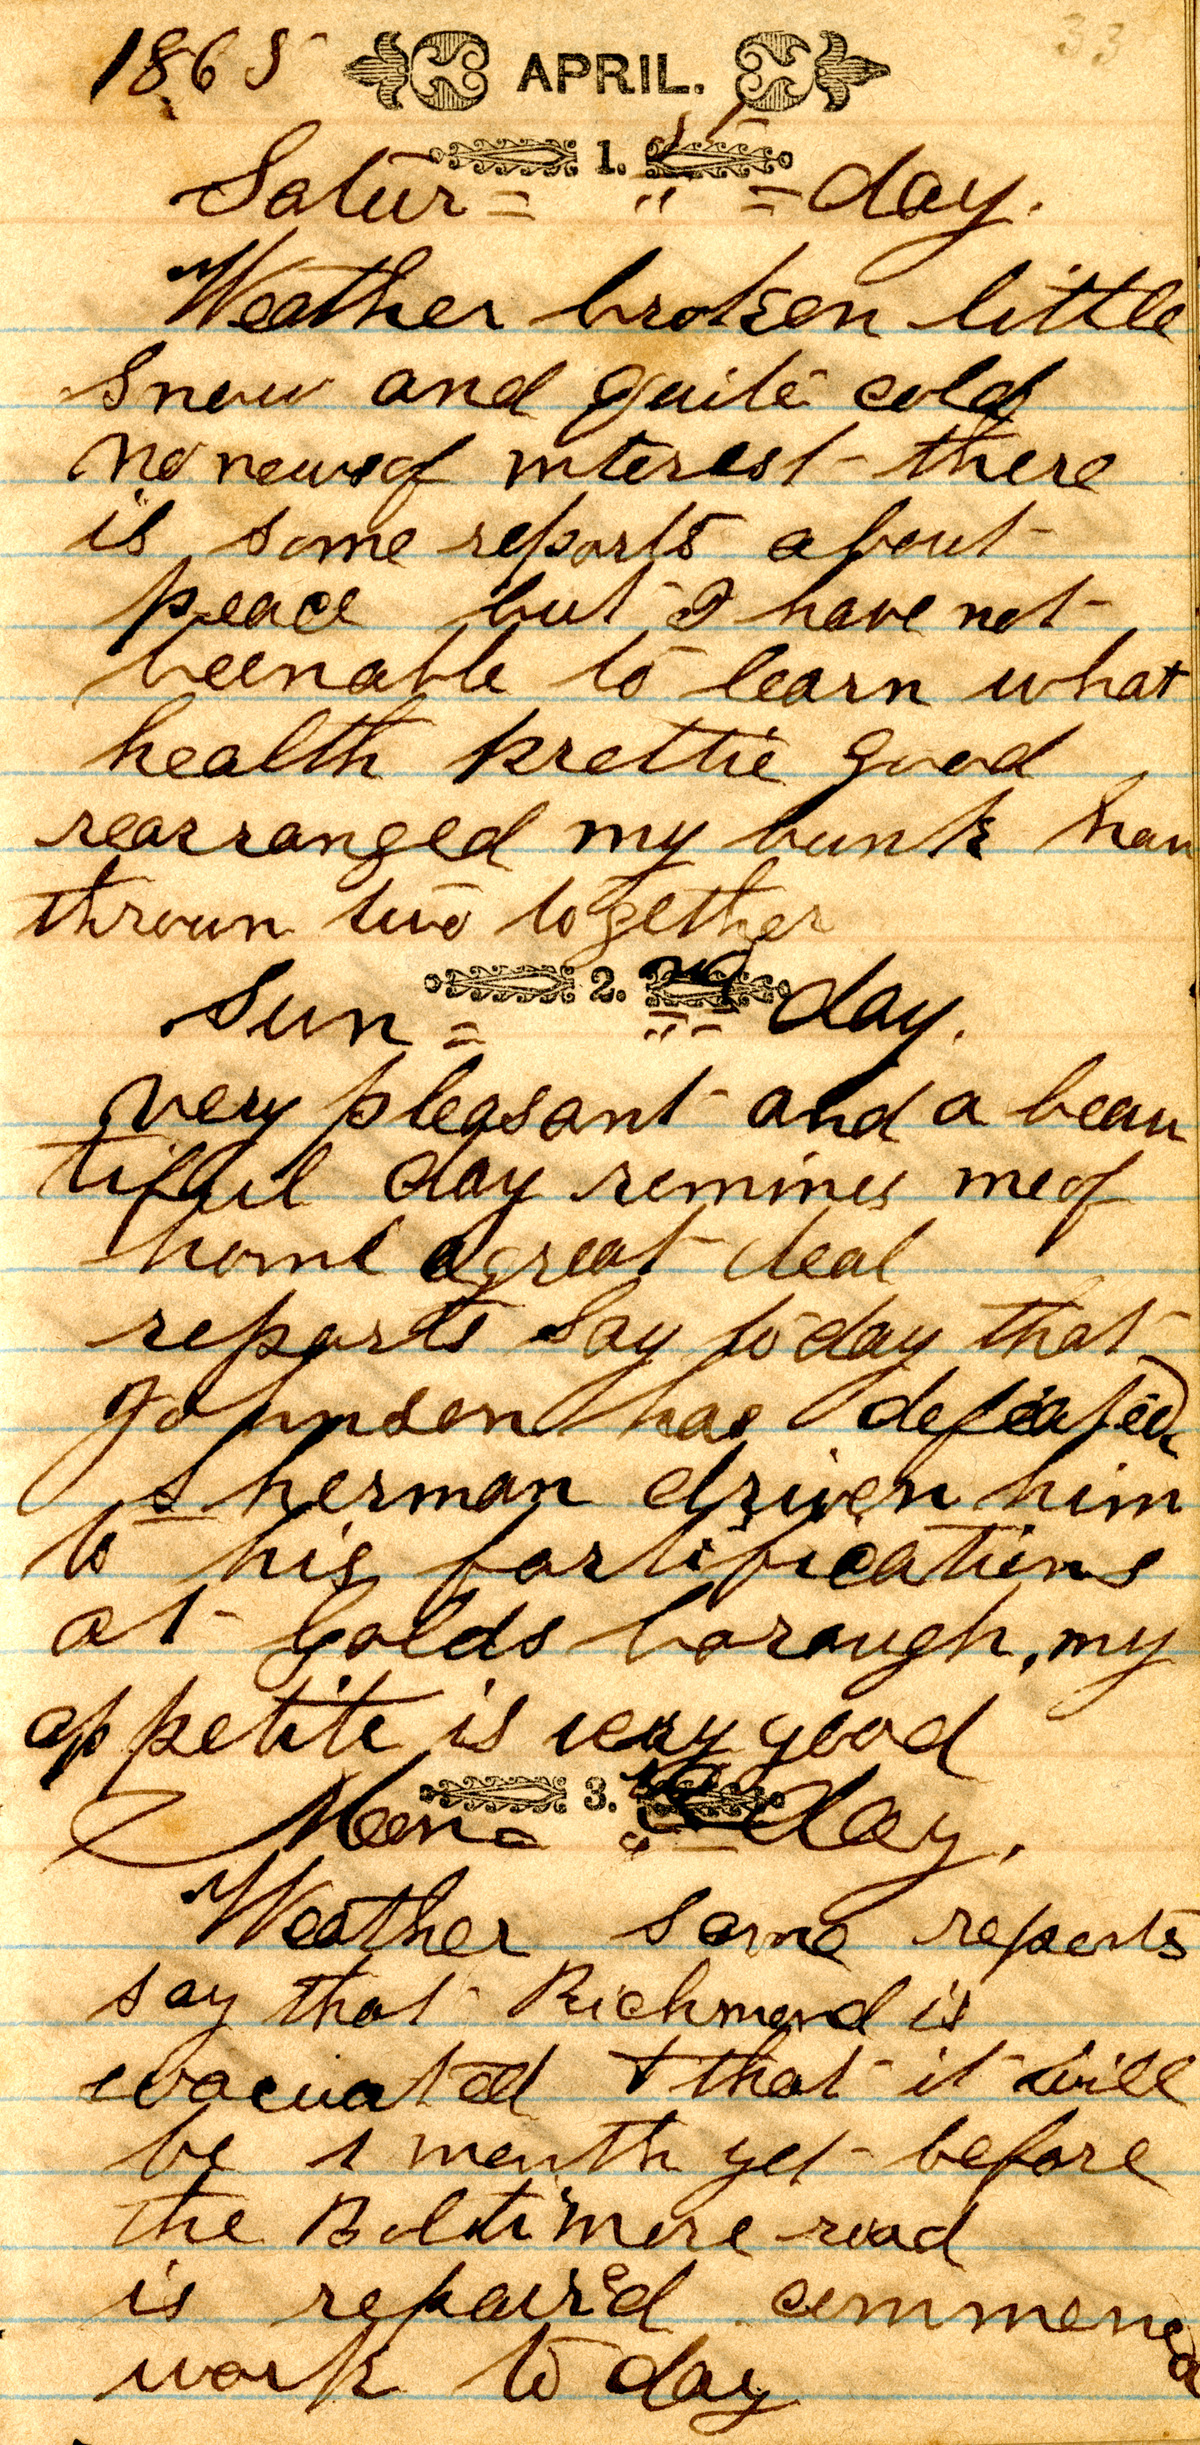 1865 APRIL. 33
1.
Satur= " =day.
Weather broken little
snow and quite cold
no news of interest there
is some reports about
peace but I have not
beenable to learn what
health prettie good
rearranged my bunk hav
thrown two together
2. nd
Sun = " day.
very pleasant and a beau
tifful day remines me of
home a great deal
reports say to day that
Johnson has defeated
Sherman driven him
to his fortifications
at Golds borough, my
appetite is very good
3.
Mon= " day.
Weather same reports
say that Richmond is
evacuated & that it will
be 1 month yet before
the Boltimore road
is repaired commenced
work to day